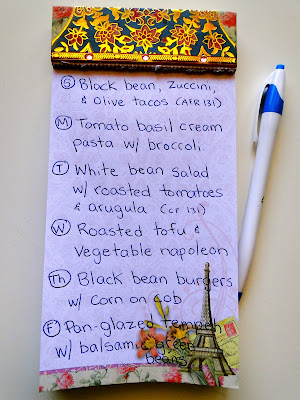 S Black bean, zuccini,
& Olive tacos (AFR 131)
M Tomato basil cream
pasta w/ broccoli
T White bean salad
w/ roasted tomatoes
& arugula (CF 131)
W Roasted tofu &
Vegetable napoleon
Th Black bean burgers
w/ corn on cob
F Pan-glazed tempeh
w/ balsamic green
beans